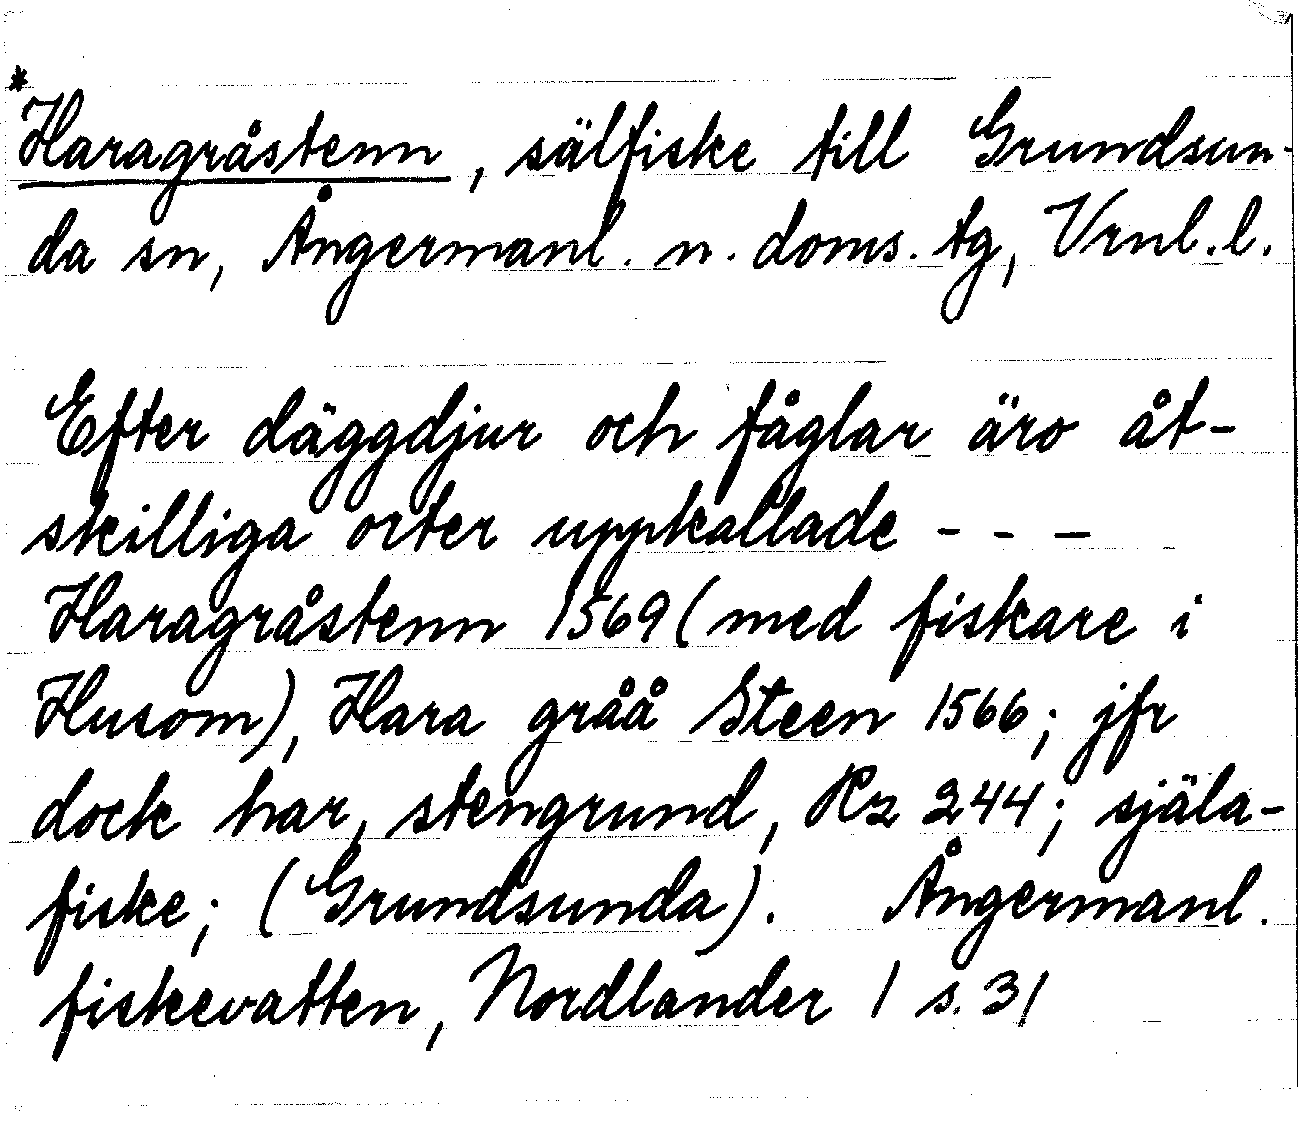 *Haragråstenn, sälfiske till Grundsun-
da sn, Ångermanl. n. doms. tg, Vrnl. l.
Efter däggdjur och fåglar äro åt-
skilliga orter uppkallade - - -
Haragråstenn 1569 (med fiskare i
Husom), Hara gråå Steen 1566; jfr
dock har, stengrund, Rz 244; själa-
fiske; (Grundsunda). Ångermanl.
fiskevatten, Nordlander 1 s. 31